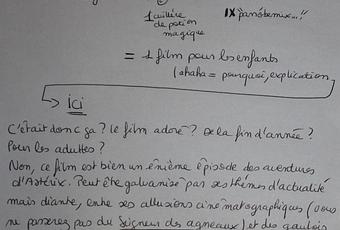 1 cuillère
de potion
magique
IX "panoramix...!"
= 1 film pour les enfants
(ahaha = pourquoi, explication
Ici
C'était donc ça ? le film adoré ? De la fin d'année ?
Pour les adultes ?
Non, ce film est bien un énième épisode des aventures
d'Astérix. Peut être galvanisé par ses thèmes d'actualité
mais diante, entre ses allusions cinématographiques (vous
ne passerez pas du Seigneur des agneaux) et des gaulois